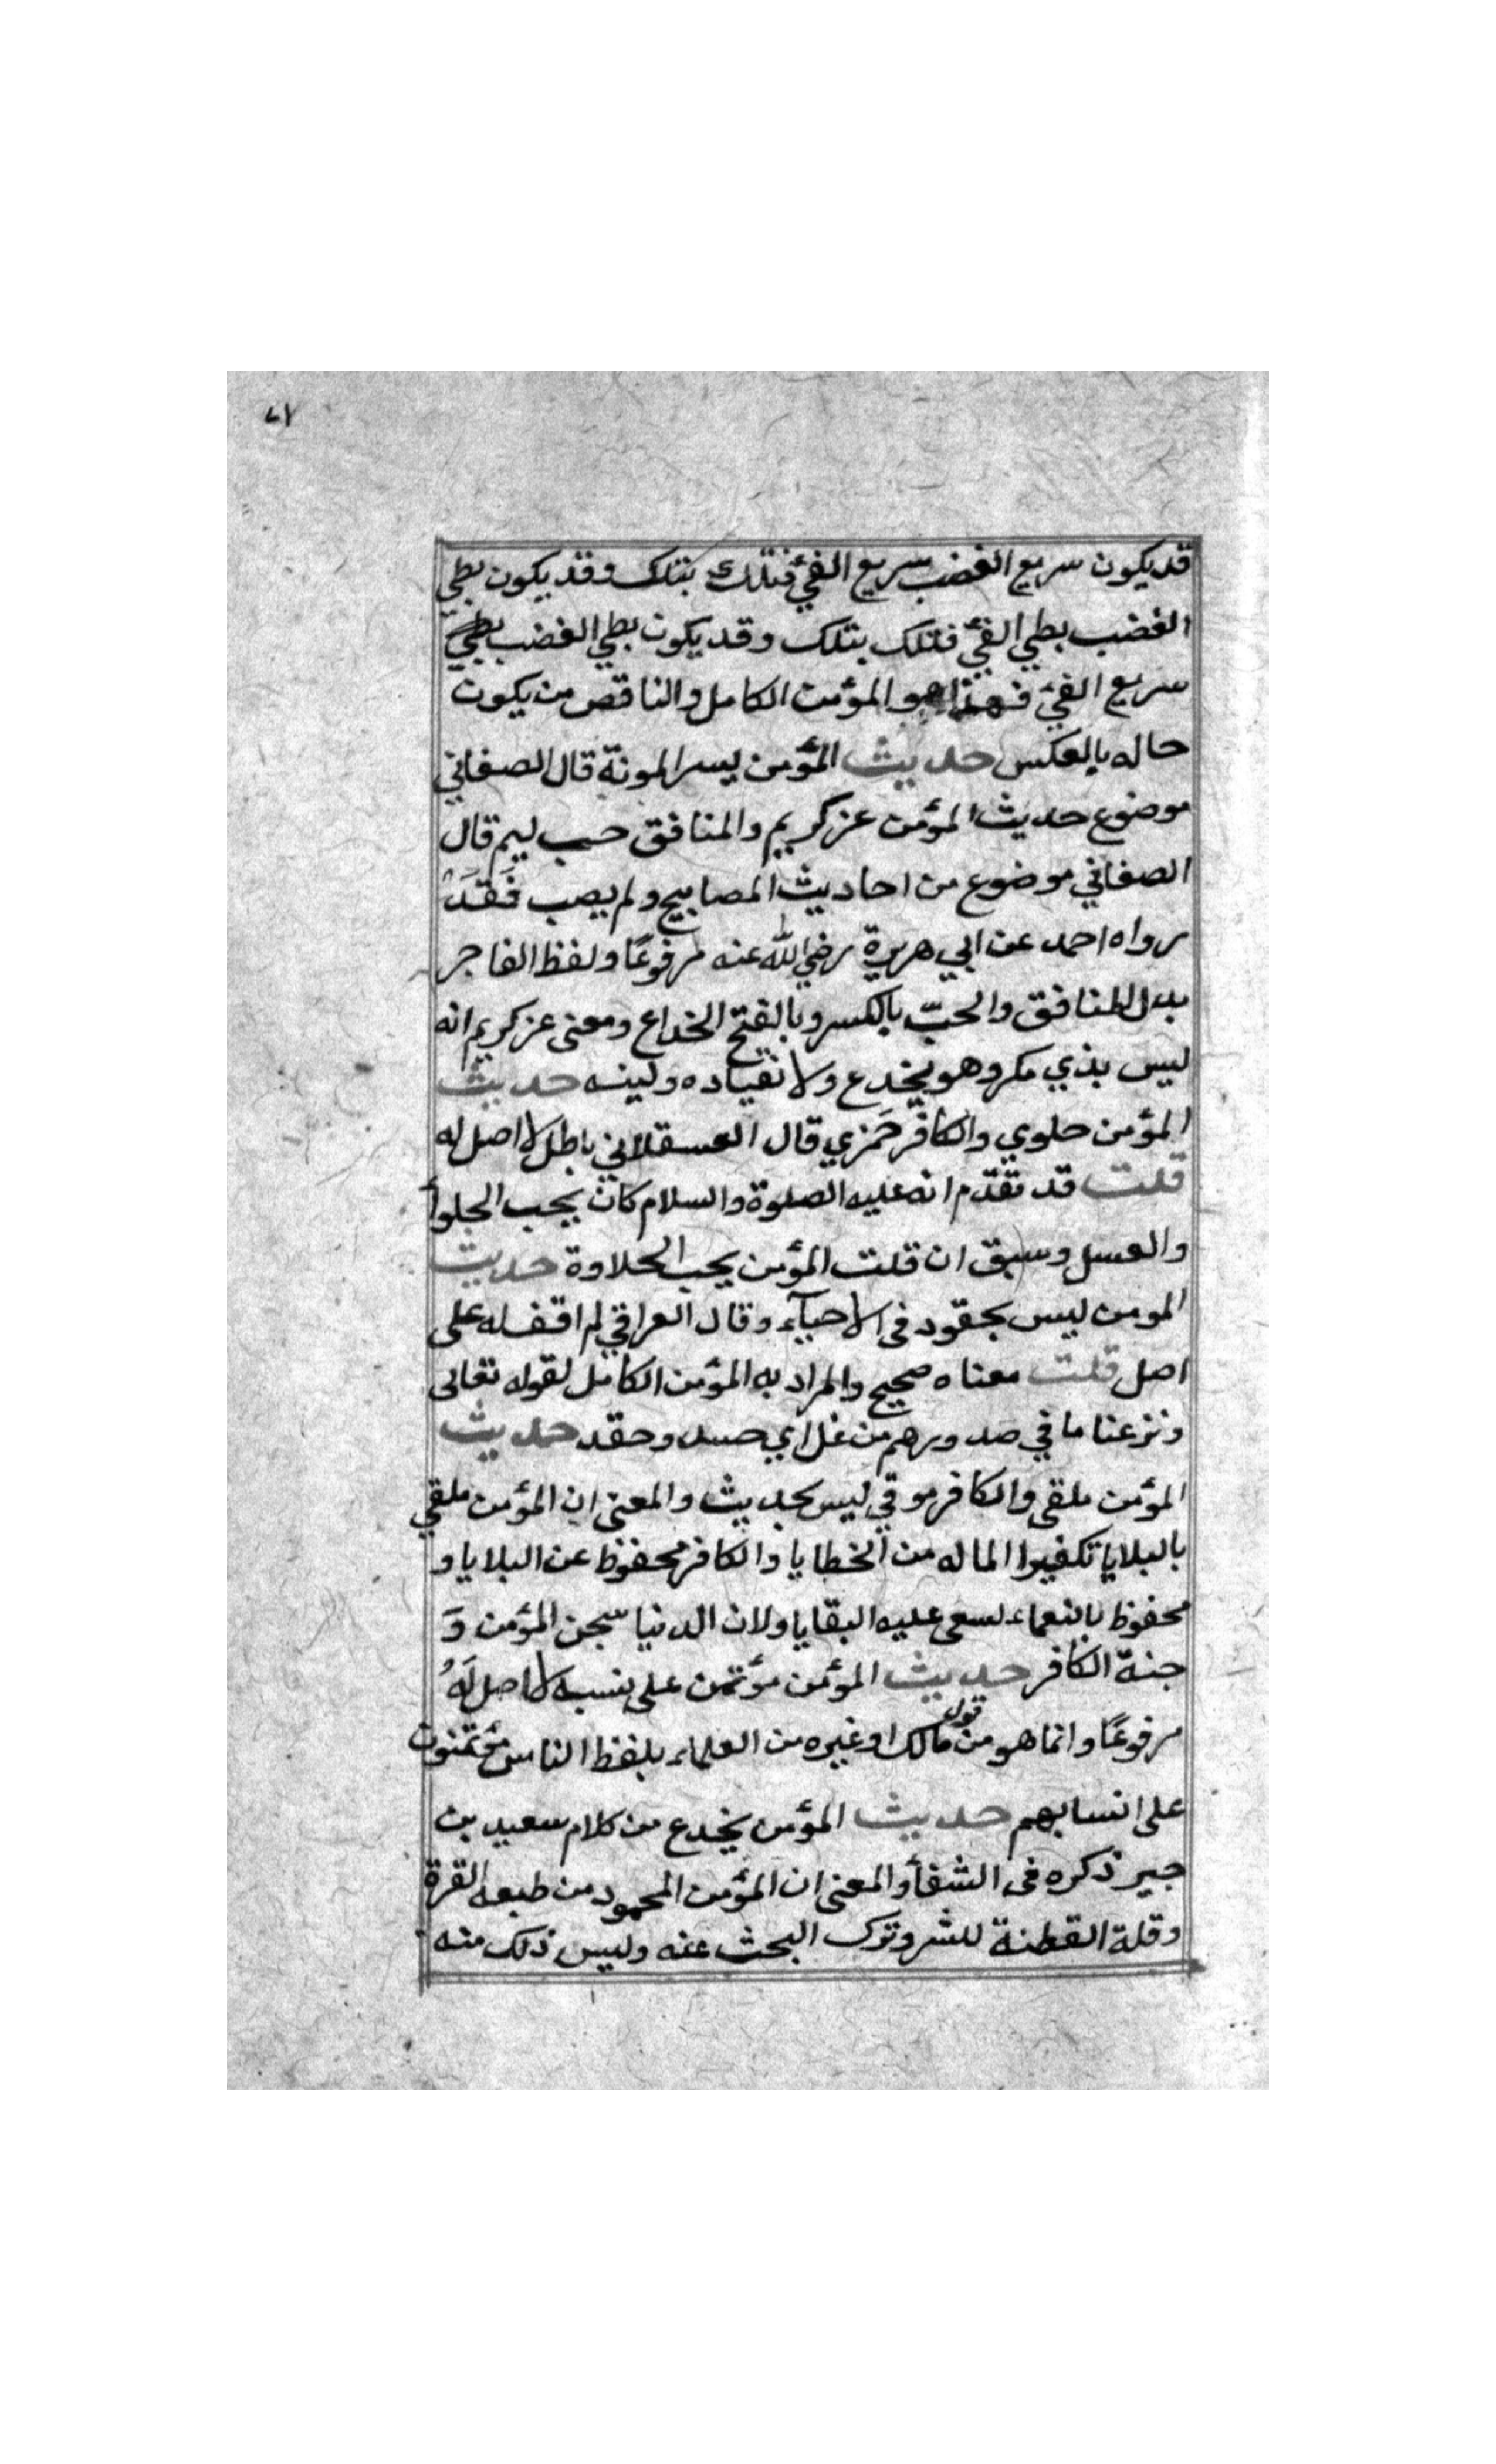 ٧١
قد يكون سريع الغضب سريع الفئ فتلك بتلك وقد يكون بطي
الغضب بطي الفئ فتلك بتلك وقد يكون بطي الغضب بطي
سريع الفئ فهذا هو المؤمن الكامل والناقص من يكون
حاله بالعكس حديث المؤمن يسر المونة قال الصغاني
موضوع حديث المؤمن عز كريم والمنافق حب ليم قال
الصغاني موضوع من احاديث المصابيح ولم يصب فَقَدْ
رواه احمد عن ابي هريرة رضي الله عنه مرفوعًا ولفظ الفاجر
بدل المنافق والحبّ بالكسر وبالفتح الخداع ومعنى عز كريم انه
ليس بذي مكر وهو يخدع ولانقياده ولينه حديث
المؤمن حلوي والكافر خمزي قال العسقلاني باطل لا اصل له
قلت قد تقدّم انه عليه الصلوة والسلام كان يحب الحلوأ
والعسل وسبق ان قلت المؤمن يحب الحلاوة حديث
المومن ليس بحقود فى الاحيآء وقال العراقي لم اقف له على
اصل قلت معناه صحيح والمراد به المؤمن الكامل لقوله تعالى
ونزعنا ما في صدورهم من غل اي حسد وحقد حديث
المؤمن ملقى والكافر موقي ليس بحديث والمعنى ان المؤمن ملقي
بالبلايا تكفيرا لما له من الخطايا والكافر محفوظ عن البلايا و
محفوظ بالنعماء لسعى عليه البقايا ولان الدنيا سجن المؤمن وَ
جنة الكافر حديث المؤمن مؤتمن على نسبه لا اصل لَهُ
مرفوعًا وانما هو من قول مالك او غيره من العلماء بلفظ الناس مؤتمنون
على انسابهم حديث المؤمن يخدع من كلام سعيد بن
جبير ذكره فى الشفأ والمعنى ان المؤمن المحمود من طبعه القرة
وقلة القطنة للشر وترك البحث عنه وليس ذلك منه